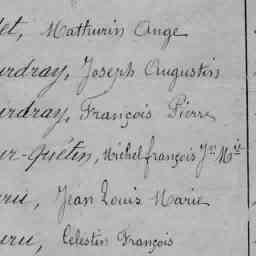 let, Mathurin Ange
urdray, Joseph Augustin
urdray, François Pierre
ur-Quétin, Michel françois Jn Mie
eru, Jean Louis Marie
uru, Célestin François